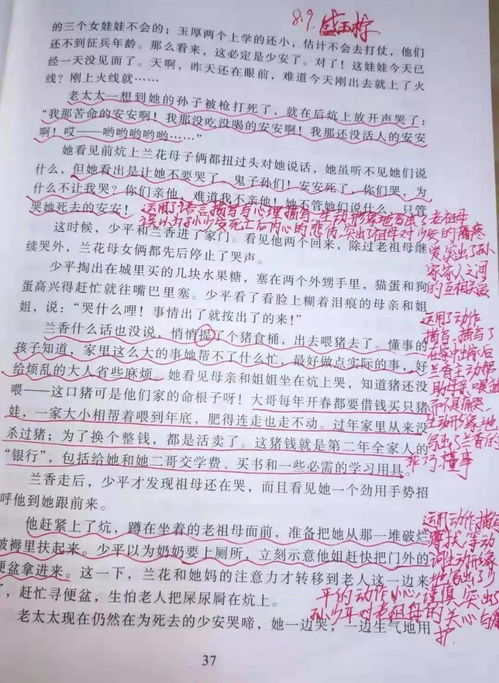 8.9
的三个女娃娃不会的；玉厚两个上学的还小，估计不会去打仗，他们
还不到征兵年龄。那么看来，这必定是少安了。对了！这娃娃今天已
经一天没见面了。天啊，昨天还在眼前，难道今天刚出去就上了火
线？刚上火线就……
老太太一想到她的孙子被枪打死了，就在后炕上放开声哭了：
“我那苦命的安安啊！我那没吃没喝的安安啊！我那还没活人的安安
啊！哎——哟哟哟哟哟……”
她看见前炕上兰花母子俩都扭过头对她说话，她虽听不见她们说
什么，但她看出是让她不要哭了。鬼子孙们！安安死了，你们哭，为
什么不让我哭？你们亲他，难道我不亲他！她不管她们说什么，只管
哭她死去的安安！
运用了语言描写与心理描写，生动形象地写出了老祖母
这时候，少平和兰香进了家门。看见他两个回来，除过老祖母继
续哭外，兰花母女俩都先后停止了哭声。
少平掏出在城里买的几块水果糖，塞在两个外甥手里，猫蛋和狗
蛋高兴得赶忙就往嘴巴里塞。少平看了看脸上糊着泪痕的母亲和姐
姐，说：“哭什么哩！事情出了就按出了的来！”
兰香什么话也没说，悄悄提了个猪食桶，出去喂猪去了。懂事的
孩子知道，家里这么大的事她帮不了什么忙，最好做点实际的事，好
给烦乱的大人省些麻烦。她看见母亲和姐姐坐在炕上哭，知道猪还没
喂——这口猪可是他们家的命根子呀！大哥每年开春都要借钱买只猪
娃，一家大小相帮着喂到年底，肥得连走也走不动。过年家里从来没
杀过猪；为了换个整钱，都是活卖了。这猪钱就是第二年全家人的
“银行”，包括给她和她二哥交学费、买书和一些必需的学习用具。
兰香走后，少平才发现祖母还在哭，而且看见她一个劲用手势招
呼他到她跟前来。
他赶紧上了炕，蹲在坐着的老祖母面前，准备把她从那一堆破烂
被褥里扶起来。少平以为奶奶要上厕所，立刻示意他姐赶快把门外的
便盆拿进来。这一下，兰花和她妈的注意力才转移到老人这一边来
了，赶忙寻便盆，生怕老人把屎尿屙在炕上。
老太太现在仍然在为死去的少安哭啼，她一边哭，一边生气地用
运用了动作
描写，写了
生动形象地
写出了兰香的
乖巧、懂事
孙少平对老祖母的关心与
37